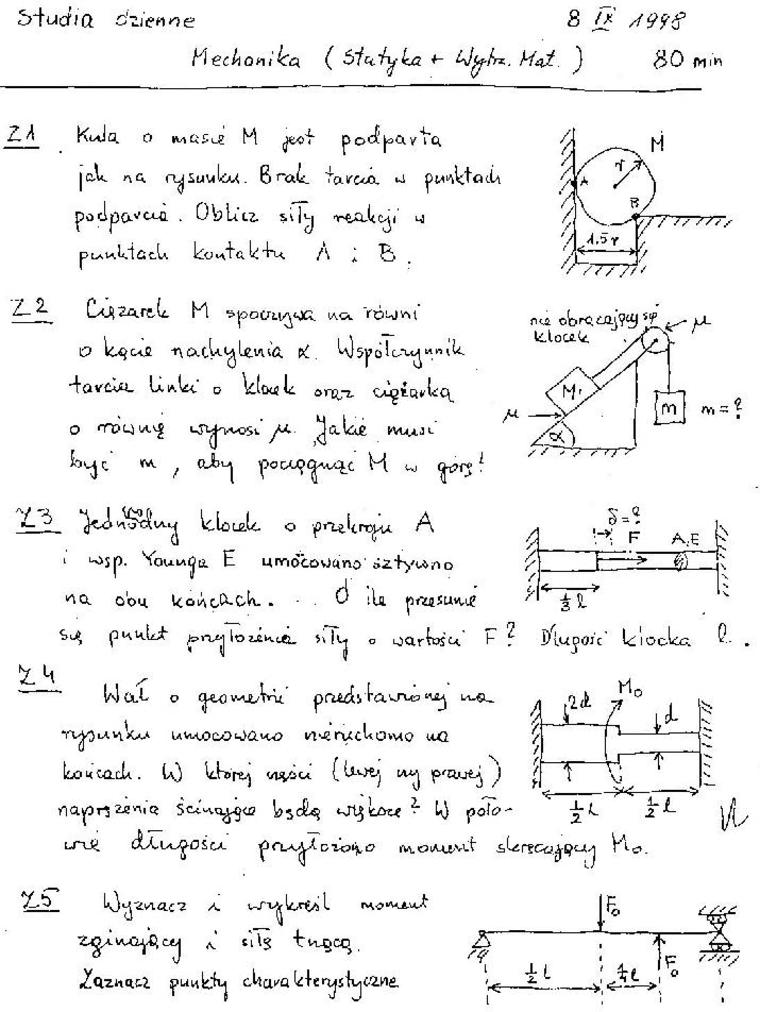 Studia dzienne 8 IX 1998
Mechanika (Statyka + Wytrz. Mat.) 80 min
Z1 Kula o masie M jest podparta
jak na rysunku. Brak tarcia w punktach
podparcia. Oblicz siły reakcji w
punktach kontaktu A i B.
M
r
A
B
1.5r
Z2 Ciężarek M spoczywa na równi
o kącie nachylenia α. Współczynnik
tarcia linki o klocek oraz ciężarka
o równię wynosi μ. Jakie musi
być m, aby pociągnąć M w górę?
nie obracający się
klocek
μ
M
μ
m
m = ?
α
Z3 Jednorodny klocek o przekroju A
i wsp. Younga E umocowano sztywno
na obu końcach. . . O ile przesunie
się punkt przyłożenia siły o wartości F? Długość klocka l.
δ = ?
F
A,E
1/3 l
Z4 Wał o geometrii przedstawionej na
rysunku umocowano nieruchomo na
końcach. W której części (lewej czy prawej)
naprężenia ścinające będą większe? W poło-
wie długości przyłożono moment skręcający M₀.
2d
M₀
d
1/2 l
1/2 l
Z5 Wyznacz i wykreśl moment
zginający i siłę tnącą.
Zaznacz punkty charakterystyczne
F₀
F₀
1/2 l
1/4 l